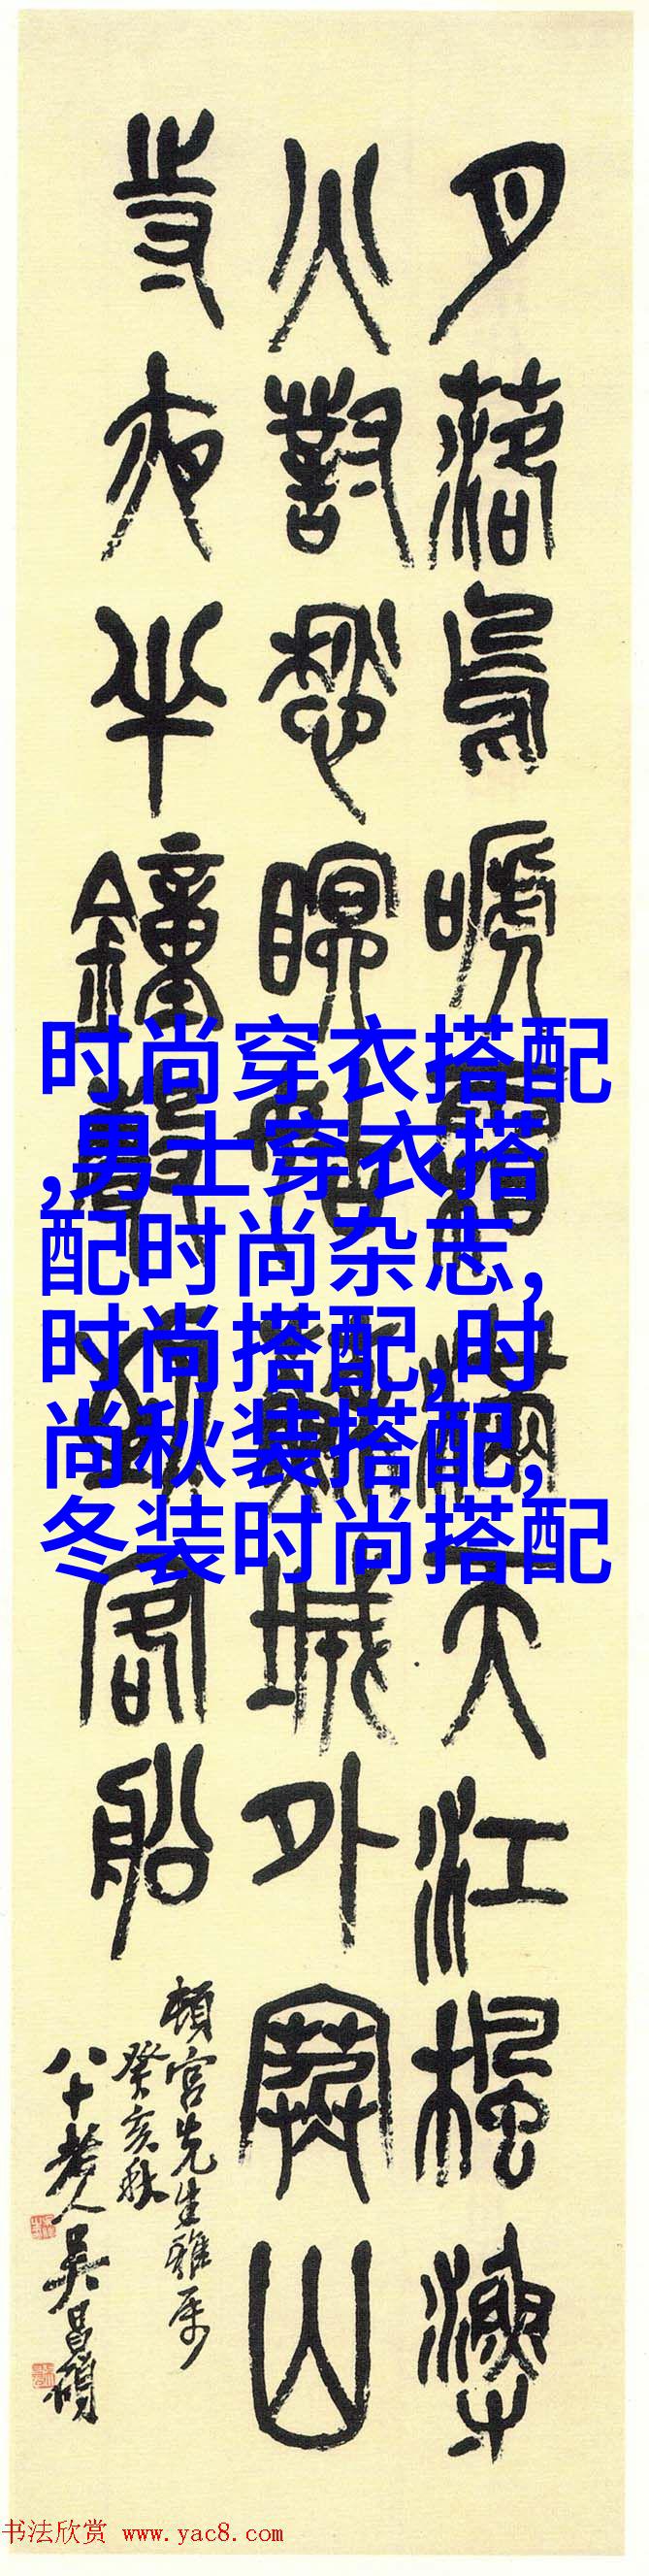 月落烏嗁霜滿天江楓漁
火對愁瞑姑蘇城外寒山
寺夜半鐘聲到客船
頓宮先生雅屬
癸亥秋
八十老人吳昌碩
时尚穿衣搭配
,男士穿衣搭
配时尚杂志,
时尚搭配,时
尚秋装搭配,
冬装时尚搭配
书法欣赏 www.yac8.com